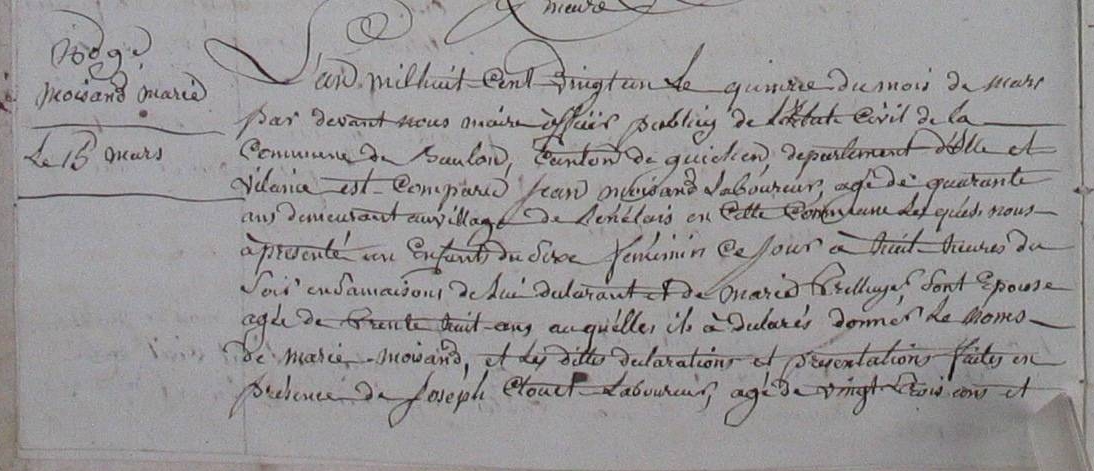 meure
N.º 9.e
Moisand marie
Le 15 mars
L'an milhuit Cent vingt un Le quinze du mois de mars
par devant nous maire officier publiq de L'état Civil de la
Commune de Baulon, Canton de guichen departement d'Ille et
Vilaine est Comparu Jean Moisand Laboureur, agé de quarante
ans demeurant au village de en Cette Commune Lequel nous
à présenté un Enfant du Sexe féminin né ce Jour à huit heures du
Soir en Samaison, de Lui declarant et de marie Sont Epouse
agée de trente huit ans auquelles ils à declarés donnér Le Noms
de marie moisand, et Les dittes declarations et presentations faites en
présence de Joseph Clouet Laboureur, agé de vingt trois ans et